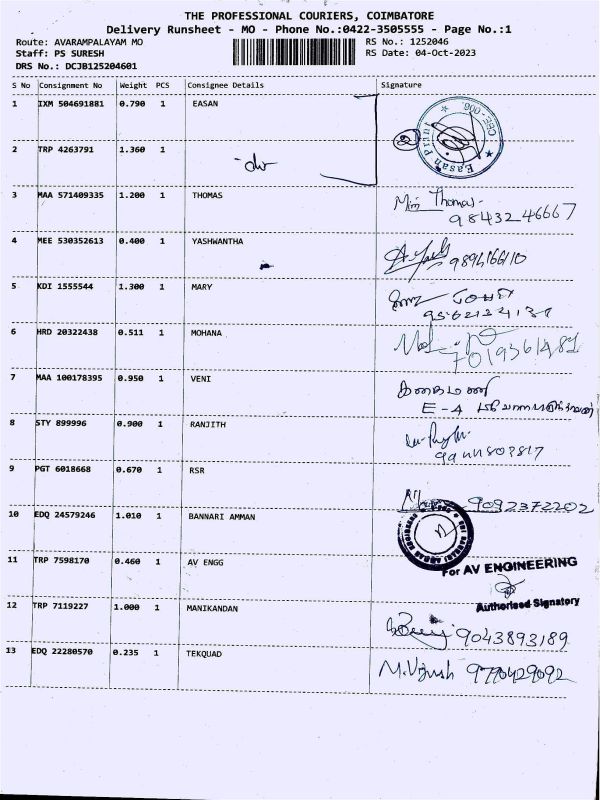 THE PROFESSIONAL COURIERS, COIMBATORE
Delivery Runsheet - MO - Phone No.:0422-3505555 - Page No.:1
Route: AVARAMPALAYAM MO RS No.: 1252046
Staff: PS SURESH RS Date: 04-Oct-2023
DRS No.: DCJB125204601
S No Consignment No Weight PCS Consignee Details Signature
1 IXM 504691881 0.790 1 EASAN
CBE-006.
Easan
2 TRP 4263791 1.360 1
3 MAA 571409335 1.200 1 THOMAS
Thomas
98432 46667
4 MEE 530352613 0.400 1 YASHWANTHA
5 KDI 1555544 1.300 1 MARY
6 HRD 20322438 0.511 1 MOHANA
7 MAA 100178395 0.950 1 VENI
E-4
8 STY 899996 0.900 1 RANJITH
9 PGT 6018668 0.670 1 RSR
9092372202
10 EDQ 24579246 1.010 1 BANNARI AMMAN
11 TRP 7598170 0.460 1 AV ENGG
For AV ENGINEERING
Authorised Signatory
12 TRP 7119227 1.000 1 MANIKANDAN
9043893189
13 EDQ 22280570 0.235 1 TEKQUAD